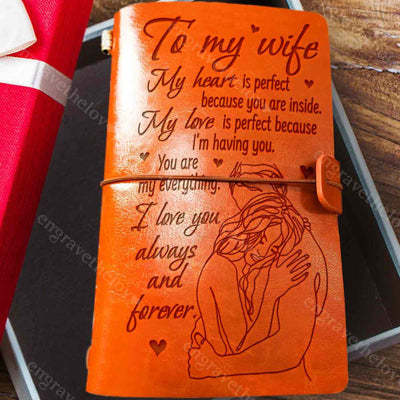 To my wife
My heart is perfect
because you are inside.
My love is perfect because
I'm having you.
You are
my everything.
I love you
always
and
forever.
engravethelov
engravethelov
engravethelov
engravethelov